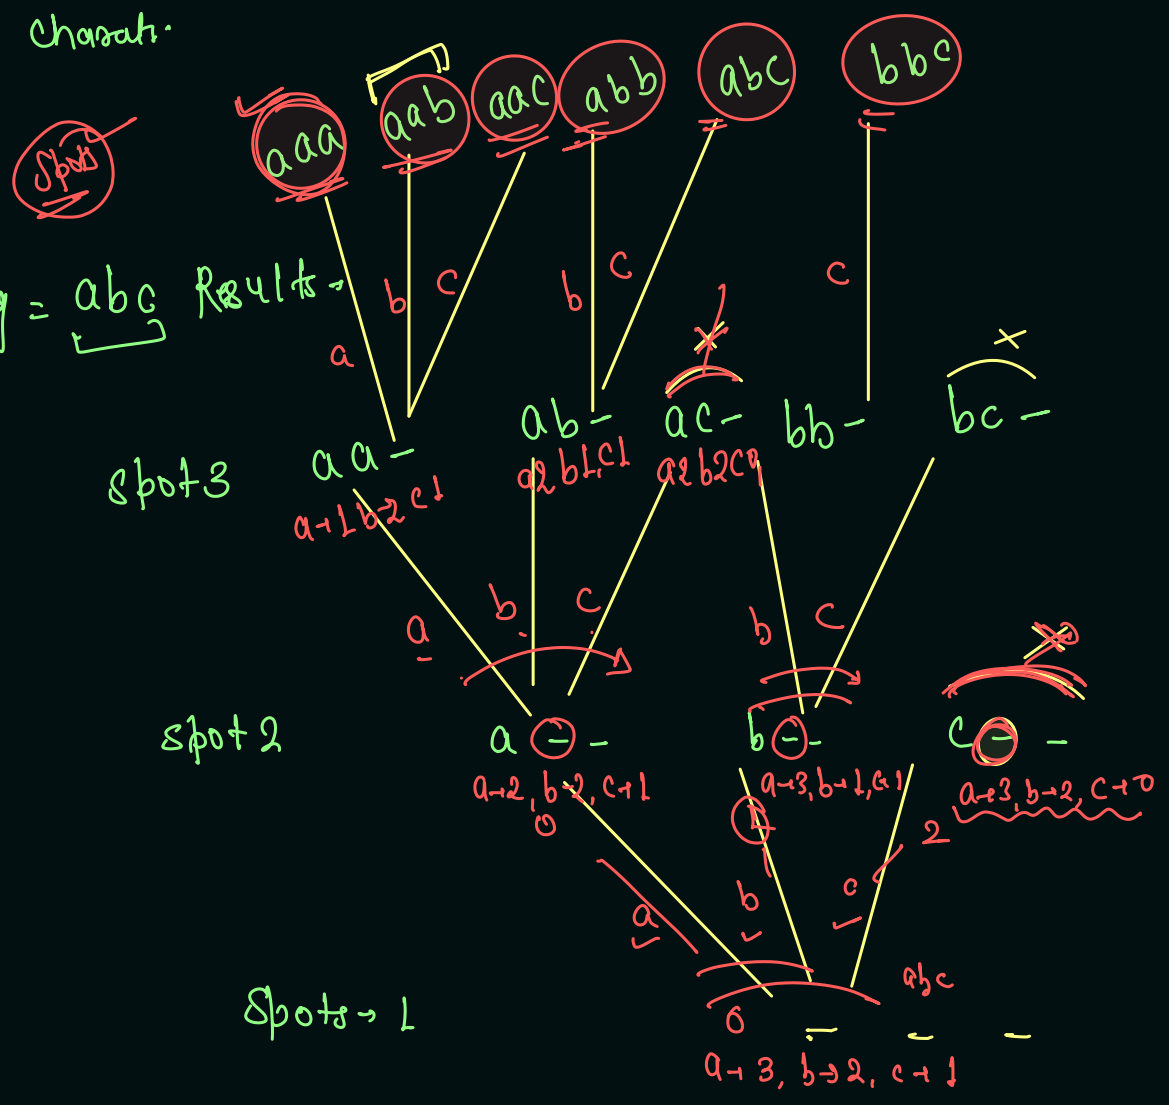 Charat.
aaa aab aac abb abc bbc
Spots
= abc Results →
a b c b c c
aa- ab- ac- bb- bc-
spot 3
a→1 b→2 c1 a2 b1, c1 a2 b2 c0
a b c b c
spot 2 a - - b - - c - -
a→2, b→2, c→1 a→3, b→1, c→1 a→3, b→2, c→0
0 1 2
a b c
abc
Spots → 1
0 - - -
a→3, b→2, c→1